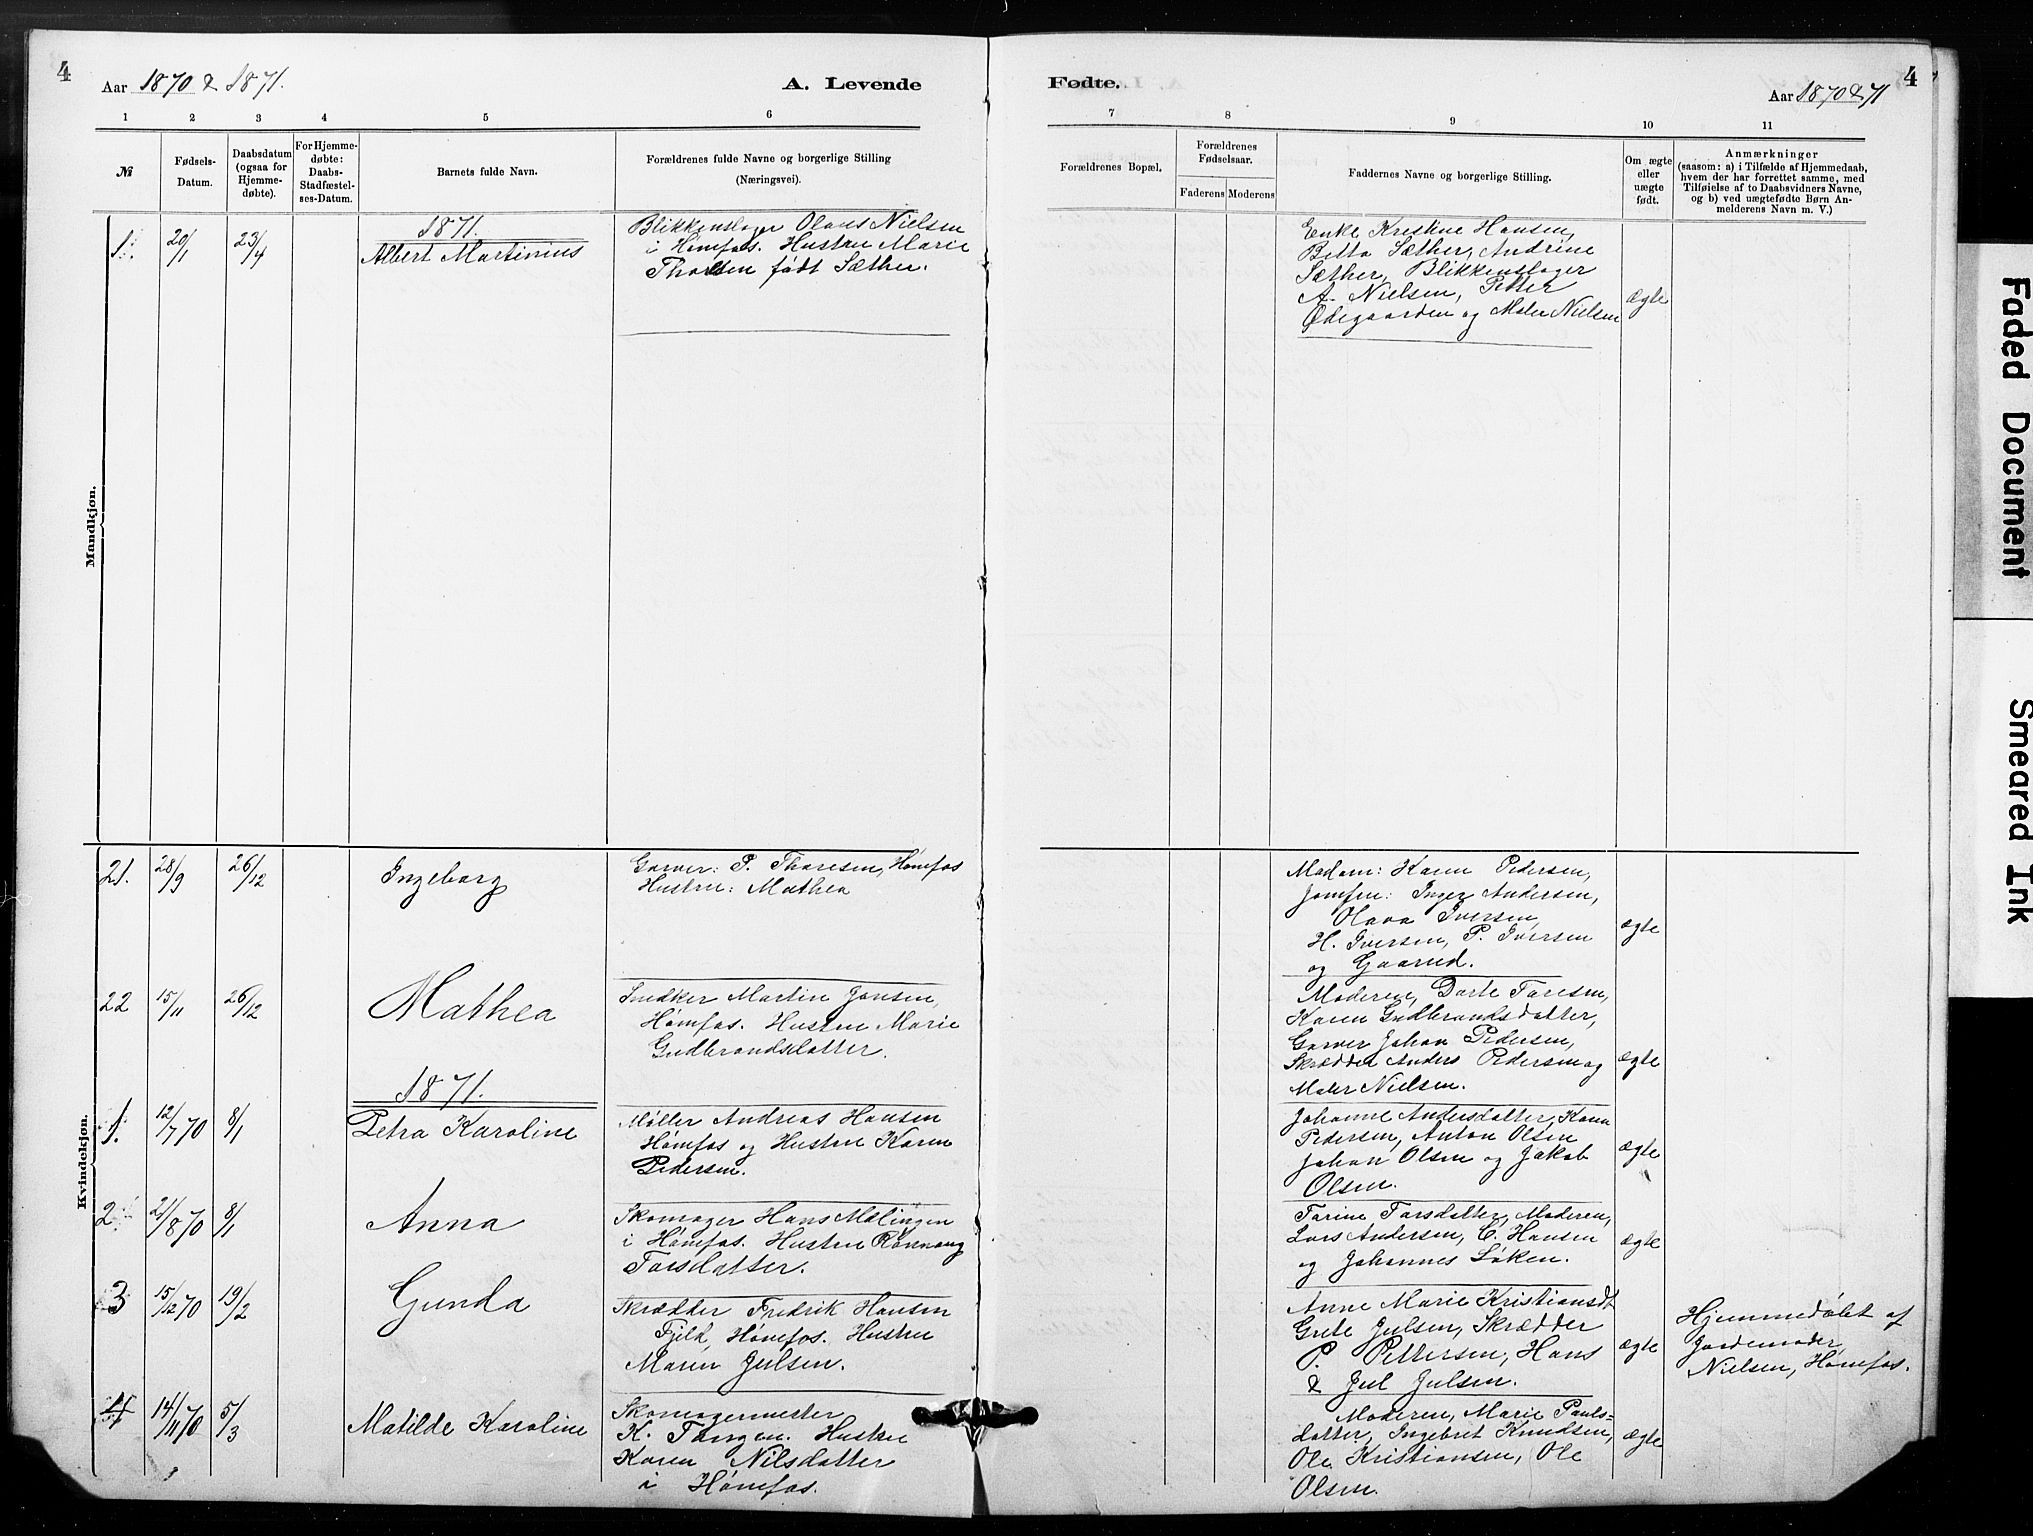 4
Aar 1870 & 1871.
A. Levende
1 2 3 4 5 6
№
Fødsels-
Datum.
Daabsdatum
(ogsaa for
Hjemme-
døbte).
For Hjemme-
døbte:
Daabs-
Stadfæstel-
ses-Datum.
Barnets fulde Navn.
Forældrenes fulde Navne og borgerlige Stilling
(Næringsvei).
Mandkjøn.
1871.
1. 20/1 23/4 Albert Martinius
Blikkenslager Olaus Nielsen
i Hønefos. Hustru Marie
født Sæther.
Kvindekjøn.
21. 28/9 26/12 Ingeborg
Garver: P. Thoresen, Hønefos
Hustru: Mathea
22 15/11 26/12 Mathea
Snedker Martin Jansen,
Hønefos. Hustru Marie
Gudbrandsdatter.
1871.
1. 12/7 70 8/1 Petra Karoline
Møller Andreas Hansen
Hønefos og Hustru Karen
Pedersen.
2 21/8 70 8/1 Anna
Skomager Hans Mælingen
i Hønefos. Hustru Rønnaug
Torsdatter.
3 15/12 70 19/2 Gunda
Skrædder Fredrik Hansen
Fjeld, Hønefos. Hustru
Maren Julsen.
4 14/11 70 5/3 Matilde Karoline
Skomagermester
K. Tangen. Hustru
Karen Nilsdatter
i Hønefos.
Fødte.
Aar 1870 & 71
4
7 8 9 10 11
Forældrenes Bopæl.
Forældrenes
Fødselsaar.
Faderens Moderens
Faddernes Navne og borgerlige Stilling.
Om ægte
eller
uægte
født.
Anmærkninger
(saasom: a) i Tilfælde af Hjemmedaab,
hvem der har forrettet samme, med
Tilføielse af to Daabsvidners Navne,
og b) ved uægtefødte Børn An-
melderens Navn m. V.)
Enke Kristine Hansen,
Betta Sæther, Andrine
Sæther, Blikkenslager
A. Nielsen, Petter
Ødegaarden og Maler Nielsen
ægte
Madam: Karen Pedersen,
Jomfru: Inger Andersen,
Olava Iversen,
H. Iversen, P. Iversen
og Gaarud.
ægte
Moderen, Dorte Toresen,
Karen Gudbrandsdatter,
Garver Johan Pedersen,
Skrædder Anders Pedersen og
Maler Nielsen.
ægte
Johanne Andersdatter, Karen
Pedersen, Anton Olsen
Johan Olsen og Jakob
Olsen.
ægte
Torine Torsdatter, Moderen,
Lars Andersen, C. Hansen
og Johannes Løken.
ægte
Anne Marie Kristiansdt
Grete Julsen, Skrædder
P. Pettersen, Hans
& Jul Julsen.
ægte
Hjemmedøbt af
Jordemoder
Nielsen, Hønefos.
Moderen, Marie Pauls=
datter, Ingebret Knudsen,
Ole Kristiansen, Ole
Olsen.
ægte
Faded Document
Smeared Ink